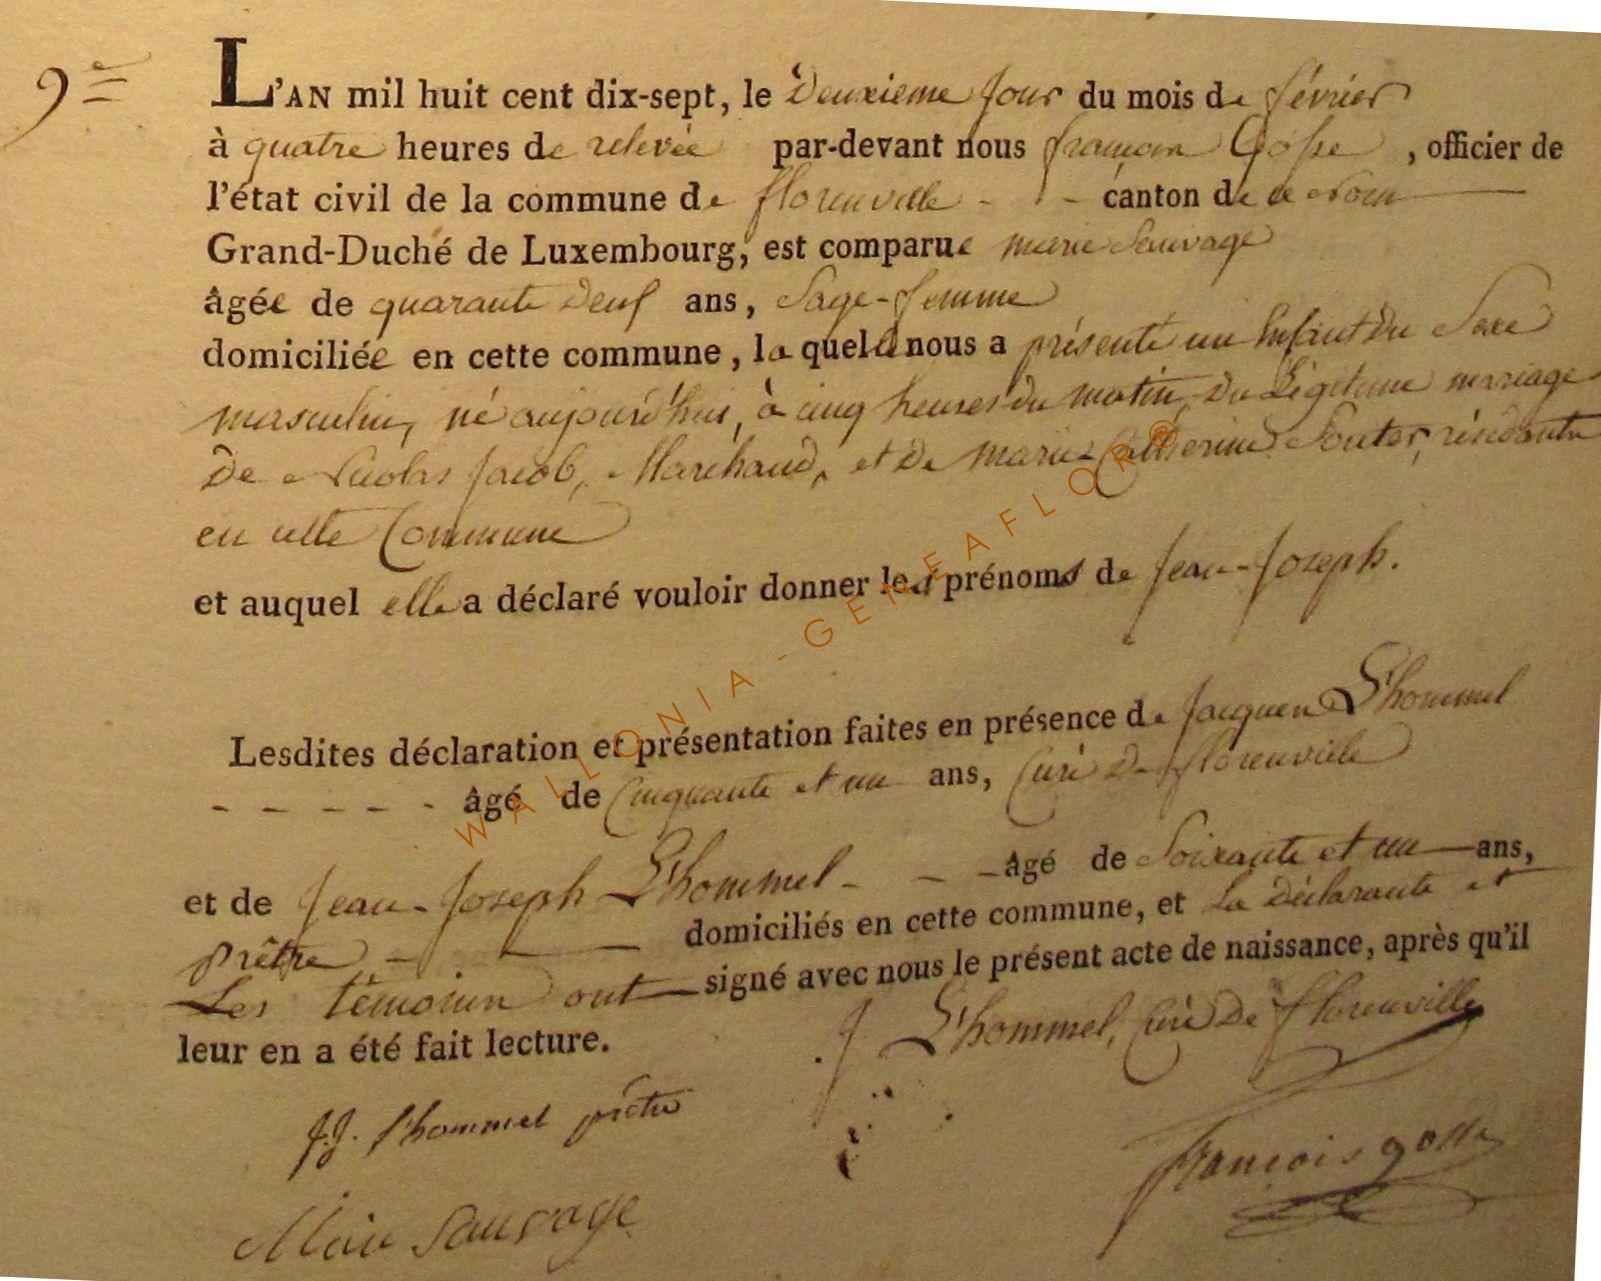 9e
L'AN mil huit cent dix-sept, le Deuxieme Jour du mois de février
à quatre heures de relevée par-devant nous françois Gosse, officier de
l'état civil de la commune de florenville - - canton de ce Nom
Grand-Duché de Luxembourg, est comparue marie Sauvage
âgée de quarante Deuf ans, Sage-femme
domiciliée en cette commune, laquelle nous a présenté un Enfant Du Sexe
masculin, né aujourd'hui, à cinq heures du matin, Du Légitime mariage
De Nicolas Jacob, Marchand, et De marie Catherine Souter, résidants
en cette Commune
et auquel elle a déclaré vouloir donner les prénoms de Jean-Joseph.
Lesdites déclaration et présentation faites en présence de Jacques L'hommel
- - - - - âgé de Cinquante et un ans, Curé De florenville
et de Jean-Joseph L'hommel - - - âgé de Soixante et un ans,
prêtre - domiciliés en cette commune, et La Déclarante et
Les témoins ont signé avec nous le présent acte de naissance, après qu'il
leur en a été fait lecture.
J L'hommel, Curé De florenville
J.J. l'hommel prêtre
françois gosse
Marie Sauvage
WALLONIA-GENEAFLOR®